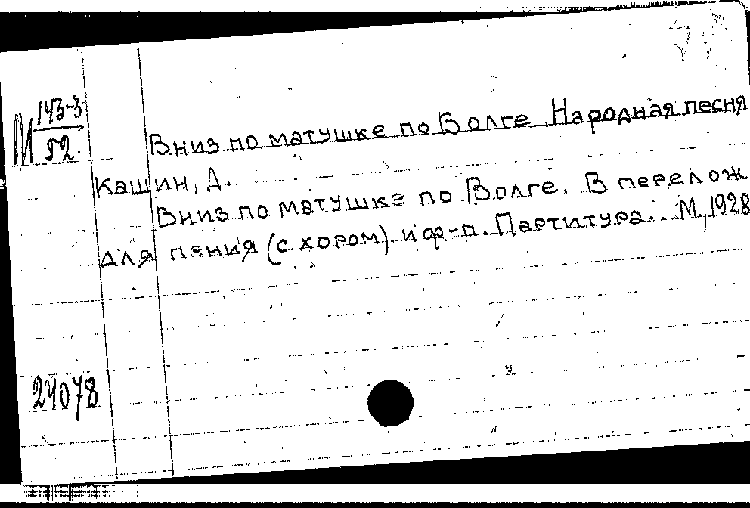 М 143-3
52
Вниз по матушке по Волге Народная песня
Кашин, Д.
Вниз по матушке по Волге. В перелож
для пения (с хором) и ф-п. Партитура. М, 1928
24078